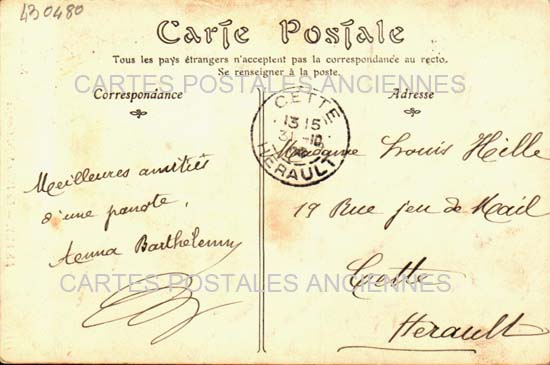 430480
Carte Postale
Tous les pays étrangers n'acceptent pas la correspondance au recto.
Se renseigner à la poste.
CARTES POSTALES ANCIENNES
Correspondance
Adresse
CETTE
13 15
31 -10
HERAULT
Meilleures amitiés
d'une parote,
Barthélemy
Madame Louis Hille
19 Rue jeu de Mail
Cette
Herault
CARTES POSTALES ANCIENNES